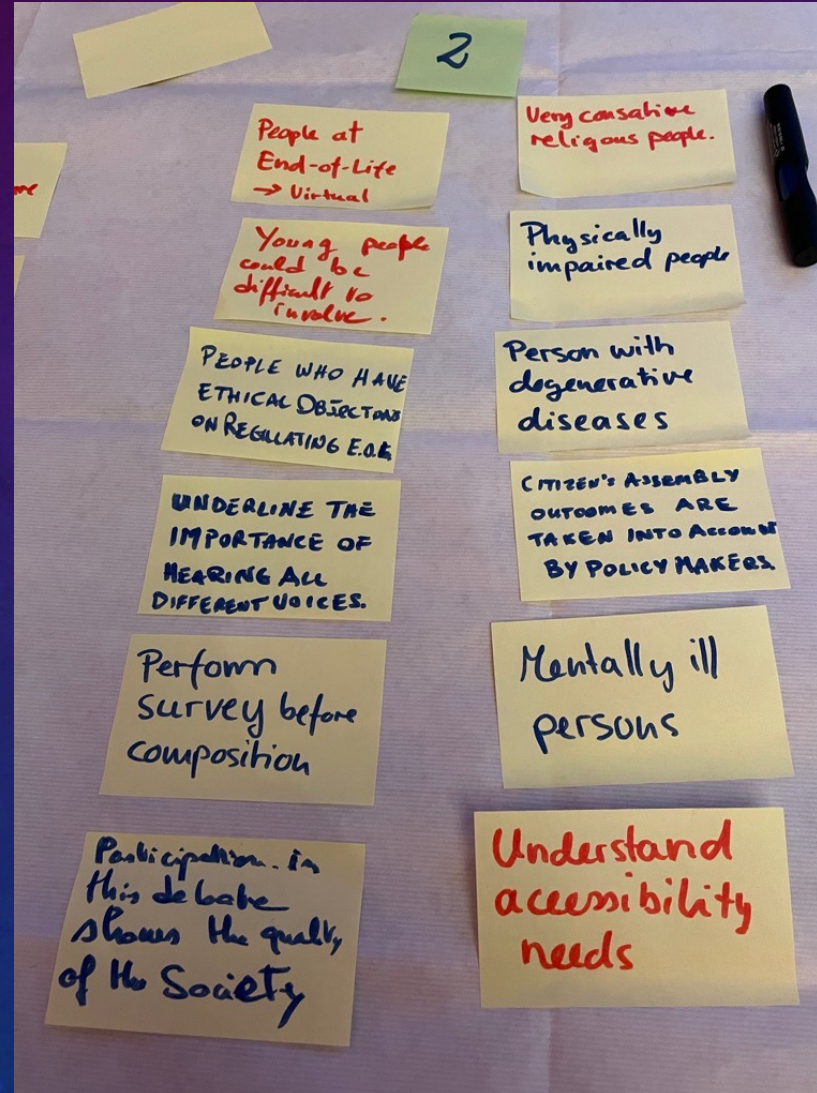 2
me
People at
End-of-Life
→ Virtual
Young people
could be
difficult to
involve.
PEOPLE WHO HAVE
ETHICAL OBJECTIONS
ON REGULATING E.O.L
UNDERLINE THE
IMPORTANCE OF
HEARING ALL
DIFFERENT VOICES.
Perform
survey before
composition
Participation in
this debate
shows the quality
of the Society
Very
religous people.
Physically
impaired people
Person with
degenerative
diseases
CITIZEN'S ASSEMBLY
OUTCOMES ARE
TAKEN INTO ACCOUNT
BY POLICY MAKERS.
Mentally ill
persons
Understand
accessibility
needs